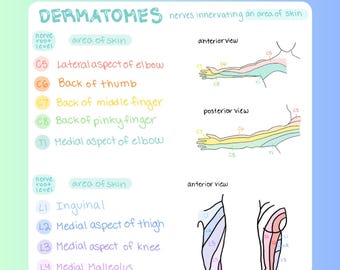 DERMATOMES nerves innervating an area of skin
nerve root level
area of skin
anterior view
C5 Lateral aspect of elbow
C6 Back of thumb
C7 Back of middle finger
C8 Back of pinky finger
T1 Medial aspect of elbow
posterior view
nerve root level
area of skin
anterior view
L1 Inguinal
L2 Medial aspect of thigh
L3 Medial aspect of knee
L4 Medial Malleolus